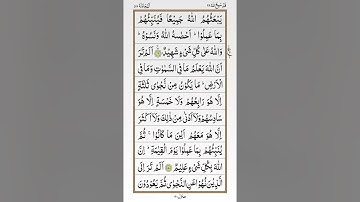 يَبْعَثُهُمُ اللّٰهُ جَمِيْعًا فَيُنَبِّئُهُمْ
بِمَا عَمِلُوْا ؕ اَحْصٰىهُ اللّٰهُ وَنَسُوْهُ ؕ
وَاللّٰهُ عَلٰى كُلِّ شَيْءٍ شَهِيْدٌ ۝ اَلَمْ تَرَ
اَنَّ اللّٰهَ يَعْلَمُ مَا فِى السَّمٰوٰتِ وَمَا فِى
الْاَرْضِ ؕ مَا يَكُوْنُ مِنْ نَّجْوٰى ثَلٰثَةٍ
اِلَّا هُوَ رَابِعُهُمْ وَلَا خَمْسَةٍ اِلَّا هُوَ
سَادِسُهُمْ وَلَاۤ اَدْنٰى مِنْ ذٰلِكَ وَلَاۤ اَكْثَرَ
اِلَّا هُوَ مَعَهُمْ اَيْنَ مَا كَانُوْا ۚ ثُمَّ
يُنَبِّئُهُمْ بِمَا عَمِلُوْا يَوْمَ الْقِيٰمَةِ ؕ اِنَّ
اللّٰهَ بِكُلِّ شَيْءٍ عَلِيْمٌ ۝ اَلَمْ تَرَ اِلَى
الَّذِيْنَ نُهُوْا عَنِ النَّجْوٰى ثُمَّ يَعُوْدُوْنَ